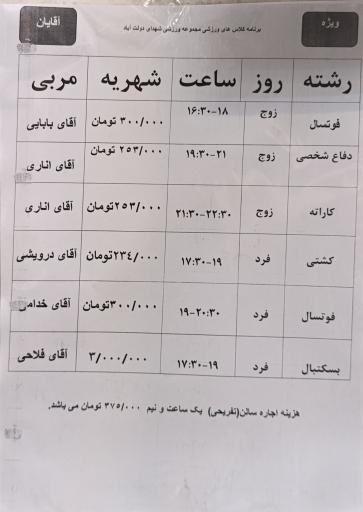 ویژه آقایان
برنامه کلاس های ورزشی مجموعه ورزشی شهدای دولت آباد
رشته روز ساعت شهریه مربی
فوتسال زوج ۱۶:۳۰-۱۸ ۳۰۰/۰۰۰ تومان آقای بابایی
دفاع شخصی زوج ۱۹:۳۰-۲۱ ۲۵۳/۰۰۰ تومان آقای اناری
کاراته زوج ۲۱:۳۰-۲۲:۳۰ ۲۵۳/۰۰۰تومان آقای اناری
کشتی فرد ۱۷:۳۰-۱۹ ۲۳٤/۰۰۰تومان آقای درویشی
فوتسال فرد ۱۹-۲۰:۳۰ ۳۰۰/۰۰۰تومان آقای خدامی
بسکتبال فرد ۱۷:۳۰-۱۹ ۳/۰۰۰/۰۰۰ آقای فلاحی
هزینه اجاره سالن(تفریحی) یک ساعت و نیم ۳۷۵/۰۰۰ تومان می باشد.